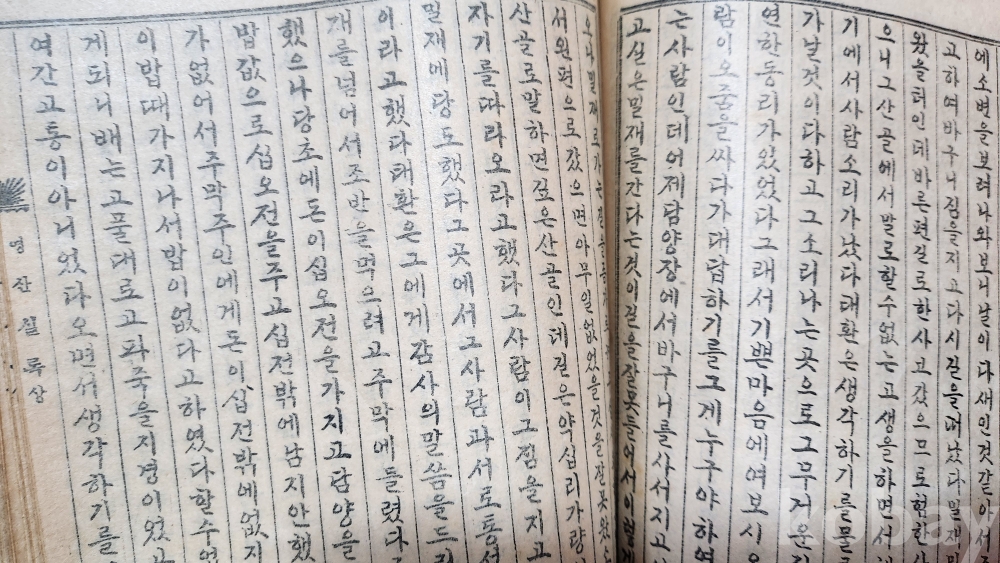 에소변을보려나와보니날이다새인것갈아서
고하여바구니짐을지고다시길을떠났다밀재
왔을터인데바른편길로한사고갔으므로험한
으니그산골에서말로할수없는고생을하면서
기에서사람소리가났다태환은생각하기를
가날것이다하고그소리나는곳으로그무거운
연한동리가있었다그래서기쁜마음에여보시
람이오줌을싸다가대답하기를그게누구야하
는사람인데어제담양장에서바구니를사서지고
고실은밀재를간다는것이길을잘못들어서이렇게
서왼편으로갔으면아무일없었을것을잘못
산골로말하면깊은산골인데길은약십리가량
자기를따라오라고했다그사람이그짐을지고
밀재에당도했다그곳에서그사람과서로통성
이라고했다태환은그에게감사의말씀을드리
재를넘어서조반을먹으려고주막에들렸다
했으나당초에돈이십오전을가지고담양을
밥값으로십오전을주고십전밖에남지안했
가없어서주막주인에게돈이십전밖에없지
이밥때가지나서밥이없다고하였다할수없
게되니배는고풀대로고파죽을지경이었고
여간고통이아니었다오면서생각하기를
명산실록상
kobay